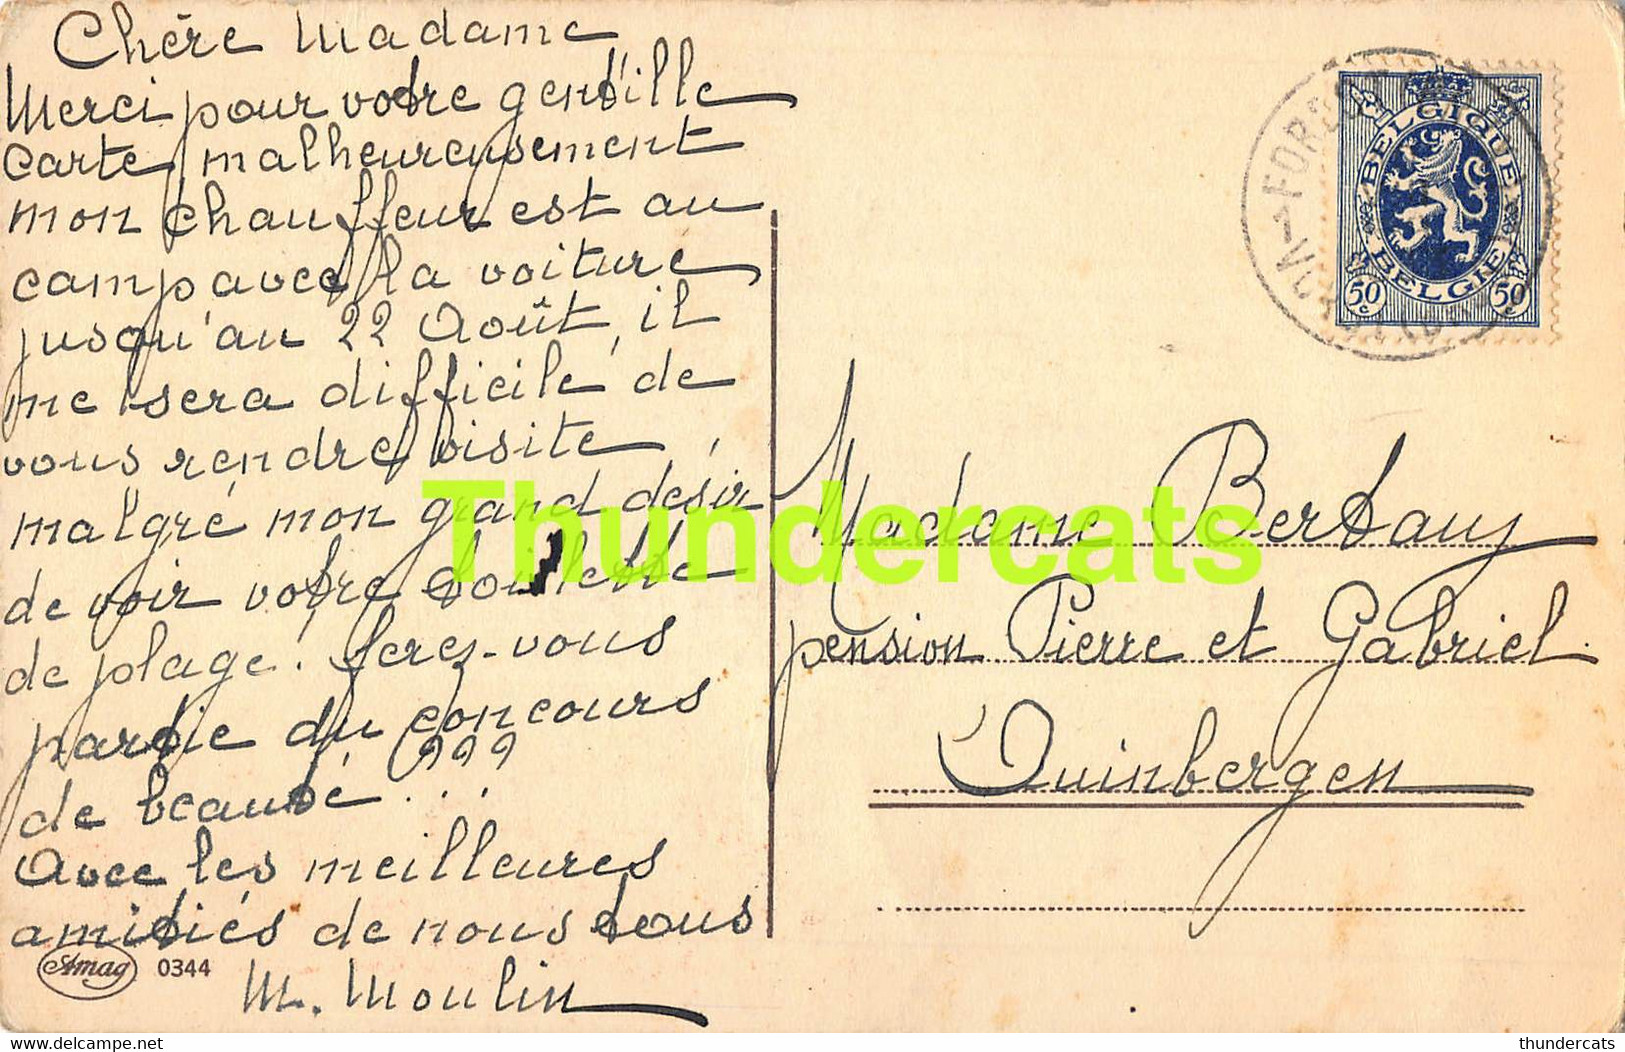 Chère Madame
Merci pour votre gentille
carte, malheureusement
mon chauffeur est au
camp avec la voiture
jusqu'au 22 Août, il
me sera difficile de
vous rendre visite,
malgré mon grand désir
de voir votre toilette
de plage! ferez-vous
partie du concours
de beauté...???
Avec les meilleures
amitiés de nous tous
M. Moulin
Amag 0344
BELGIQUE
BELGIE
50c 50c
Madame Bertauy
pension Pierre et Gabriel.
Duinbergen
Thundercats
Delcampe.net
thundercats